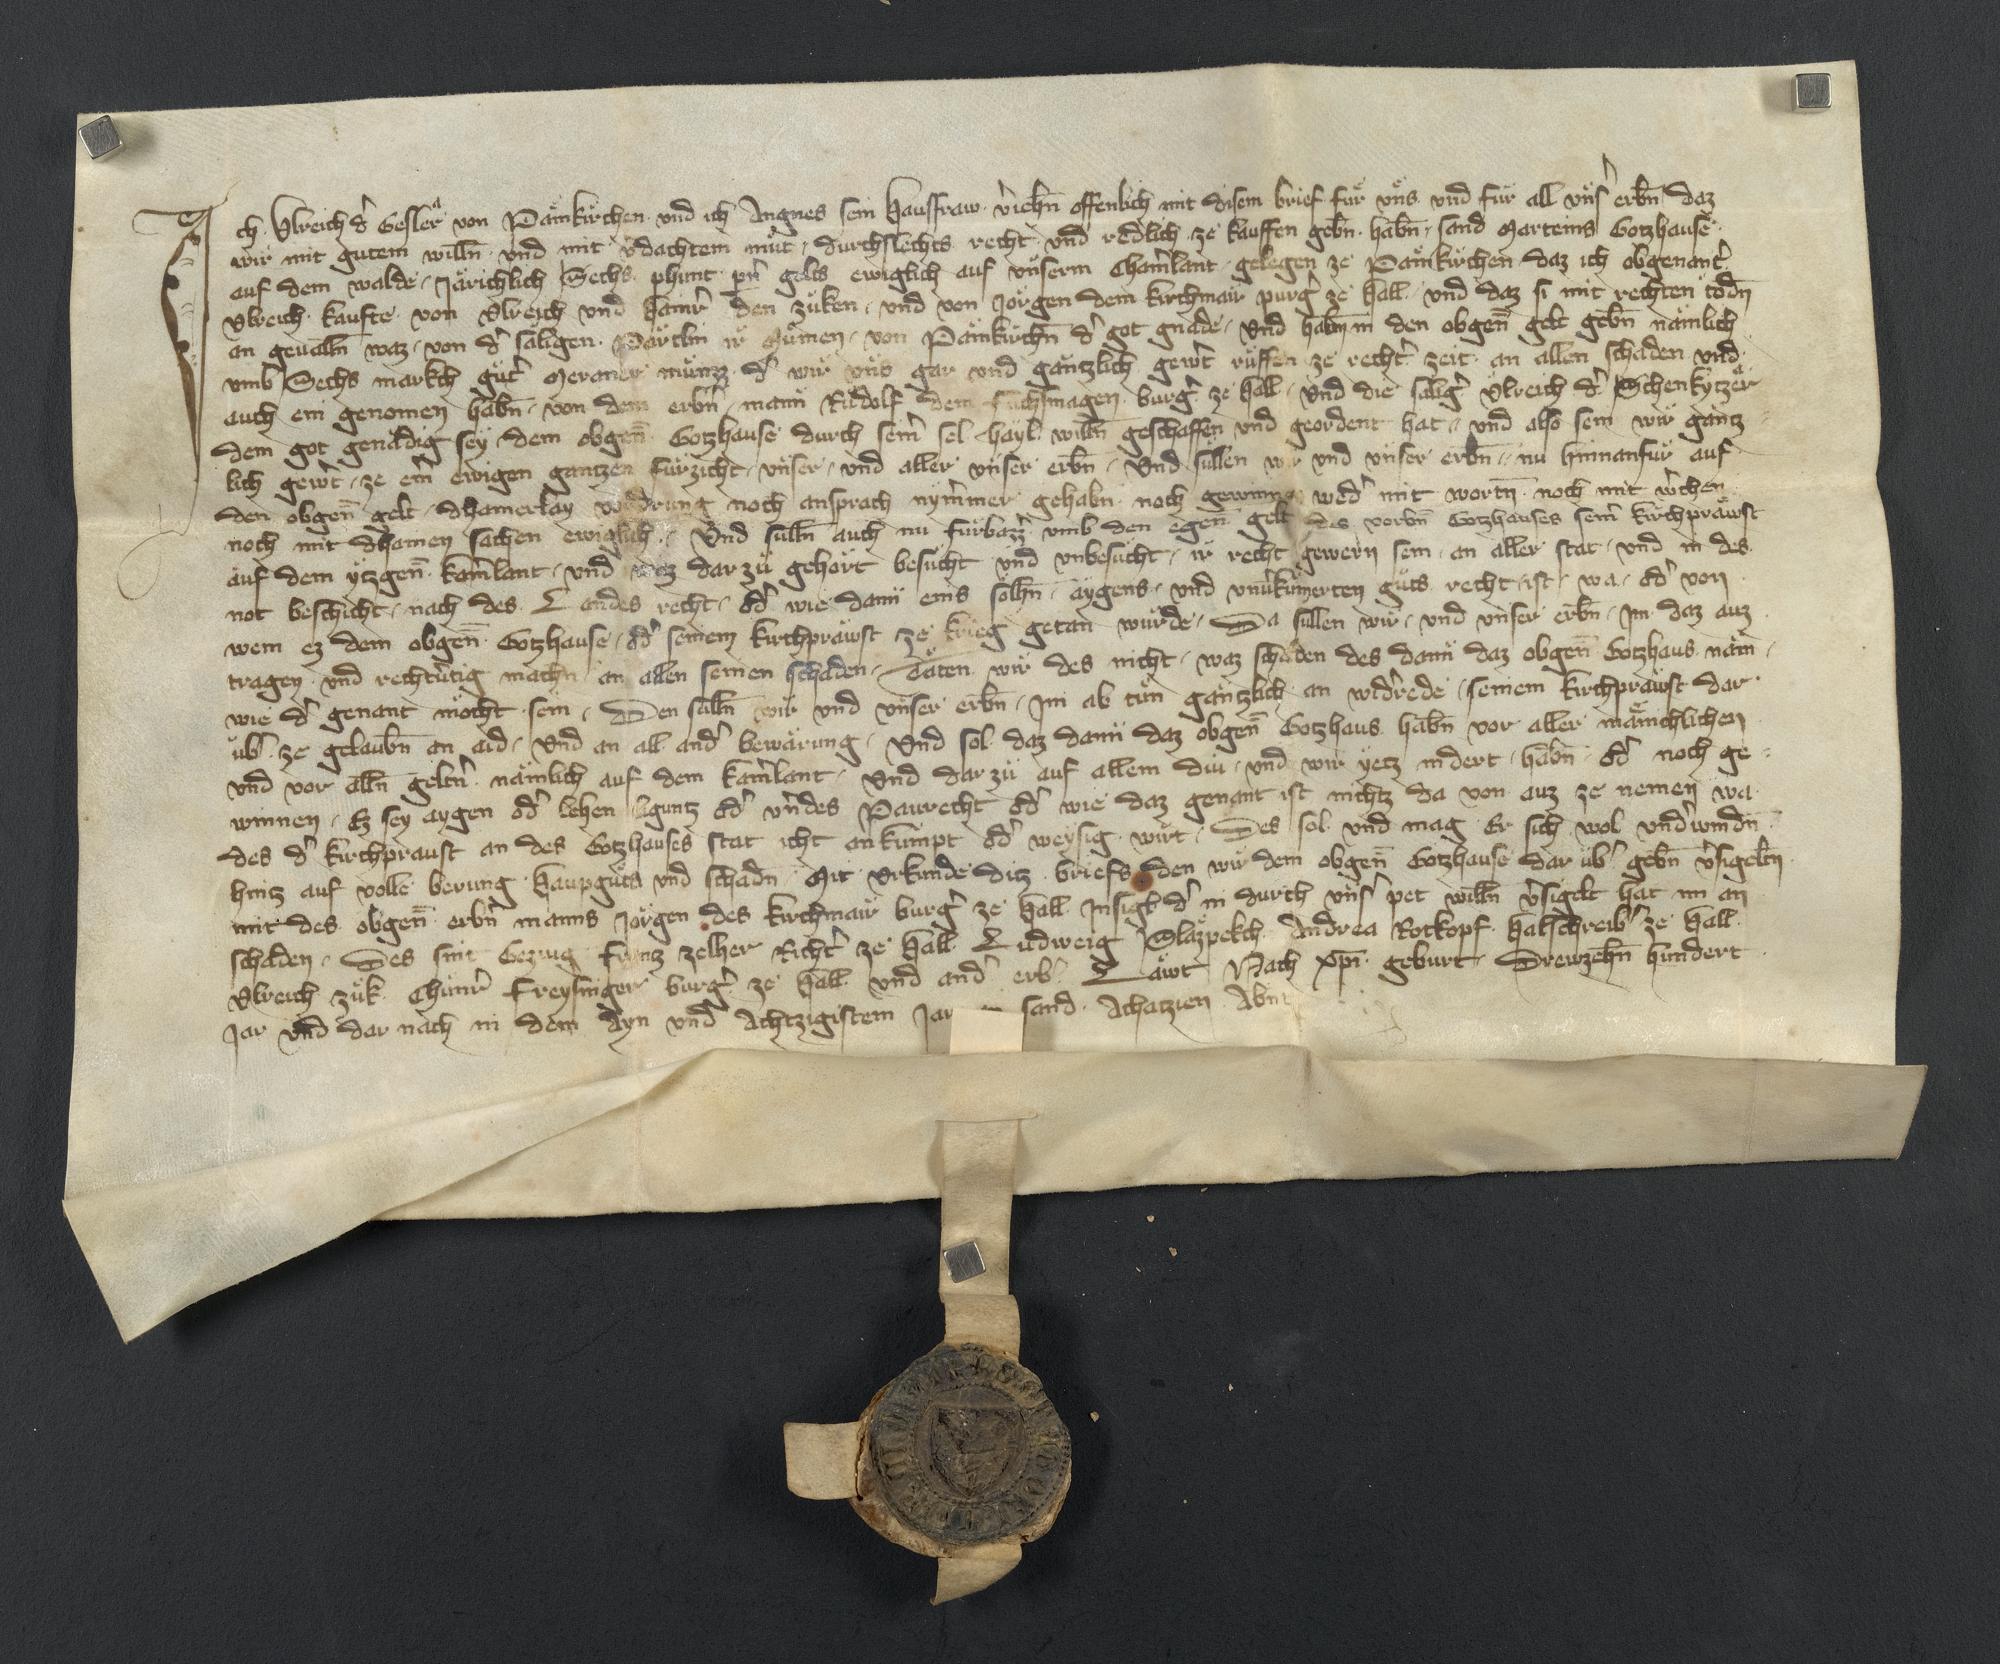 Ich Ulreich dˀ Gesler von Pämkirchen und ich Angnes sein Hausfraw vˀiehn̄ offenlich mit disem brief für uns und für all unsˀ erbn̄ daz
wir mit gutem willn̄ und mit vˀdachtem mut durchslechts recht und redlich ze kauffen gebn̄ habn̄ sand Marteins Gotzhause
auf dem walde Järichlich Sechs phunt pnˀ gelts ewiglich auf unserm Chamˀlant gelegen ze Pämkirchen daz ich obgenantˀ
Ulreich kaufte von Ulreich und den zuken und von Jörgen dem kirchmair purgˀ ze Hall und daz si mit rechten
an gevalln̄ waz von dˀ säligen ir Mumen von Pämkirchn̄ dˀ got gnade und habn̄ in den obgen̄ gelt gebn̄ nämlich
umb Sechs markch gutˀ Meraner münzz dˀ wir uns gar und gäntzlich gewˀt ze rechtˀ zeit an allen schaden und
auch ein genomen habn̄ von dem erbˀn mann Rudolf dem fuchsmagen burgˀ ze Hall und die säligˀ Ulreich dˀ
dem got genädig sey dem obgen̄ Gotzhause durch seinˀ sel hayl willn̄ geschaffen und geordent hat und also sein wir gäntz
lich gewˀt ze eim ewigen gantzen fürzicht unser und aller unser erbn̄ Und süllen wir und unser erbn̄ nu hinnanfür auf
den obgen̄ gelt dhainerlay vodrung noch ansprach nymˀmer gehabn noch gewinnen wedˀ mit wortn̄ noch mit wˀchen
noch mit dhainen sachen ewiglich Und sulln̄ auch nu fürbazz umb den egen̄ gelt des Gotzhauses seinˀ kirchpräwst
auf dem ytzgen̄ kamˀlant und waz dar zu gehört besucht und unbesucht ir recht gewern sein an aller stat und in des
not beschicht nach des Landes recht odˀ wie dann eins solhn̄ aygens und unvˀkumerten guts recht ist wa odˀ von
wem ez dem obgen̄ Gotzhause odˀ seinem kirchpräwst ze krieg getan wurde Da sullen wir und unser erbn̄ Im daz auz
tragen und rechtvˀtig machn̄ an allen seinen schaden Täten wir des nicht waz schaden des dann daz obgen̄ Gotzhaus näm
wie dˀ genant möcht sein Den sulln̄ wir und unser erbn̄ Im ab tun gäntzlich an widˀrede seinem kirchpräwst dar
übˀ ze gelaubn̄ an aid Und an all andˀ bewärung Und sol daz dann daz obgen̄ Gotzhaus habn̄ vor aller männichlichen
und vor alln̄ geltnˀ nämlich auf dem kamˀlant und dar zu auf allem diu und wir yetz indert habn̄ odˀ noch ge
winnen Ez sey aygen odˀ lehen odˀ Paurecht odˀ wie daz genant ist nichtz da von auz ze nemen wa
des dˀ kirchpraust an des Gotzhauses stat icht ankumpt odˀ weysig wirt Des sol und mag Er sich wol undˀwindn̄
hintz auf volle berung haupguts und schadn̄ Mit Urkunde ditz briefs den wir dem obgen̄ Gotzhause dar übˀ gebn̄ vˀsigeltn̄
mit des obgen̄ erbˀn manns Jörgen des kirchmair burgˀ ze Hall Insigl dˀ in durch unsˀ pet willn̄ vˀsigelt hat im an
schaden Des sint Gezeug Frantz zelher Richtˀ ze Hall Ludweig Andrea Rotkopf Halschreibˀ ze Hall
Ulreich zuk Chunrˀ Freysinger burgˀ ze Hall und andˀ erbˀ Läwt Nach Xp̄i geburt Drewzehn̄ hundert
Jar und dar nach in dem Ayn und Achtzigistem Jar sand Achatzien